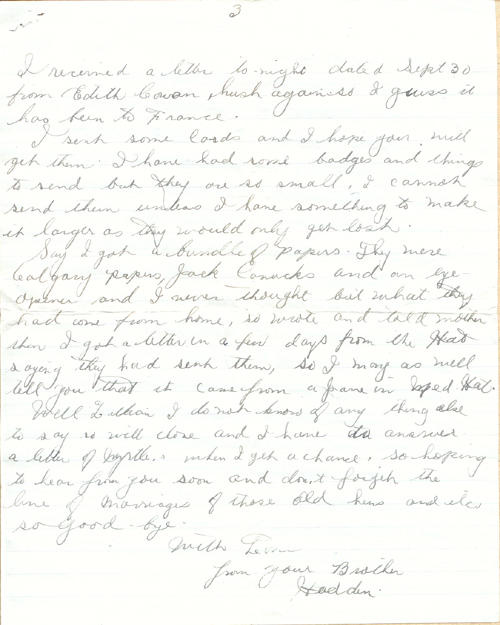 3
I received a letter to-night dated Sept 30
from Edith Cowan, hush again so I guess it
has been to France.
I sent some Cards and I hope you will
get them. I have had some badges and things
to send but they are so small, I cannot
send them unless I have something to make
it larger as they would only get lost.
Say I got a bundle of papers. They were
Calgary papers, Jack Canucks and an eye-
opener and I never thought but what they
had come from home, so wrote and told mother
then I got a letter in a few days from the Hat
saying they had sent them, so I may as well
tell you that it came from a in Hat.
Well Lillian I do not know of any thing else
to say so will close and I have to answer
a letter of Myrtle's when I get a chance. so hoping
to hear from you soon and don't forget the
line of marriages of those old hens and etc
so good-bye.
With Love
from your Brother
Hadden.